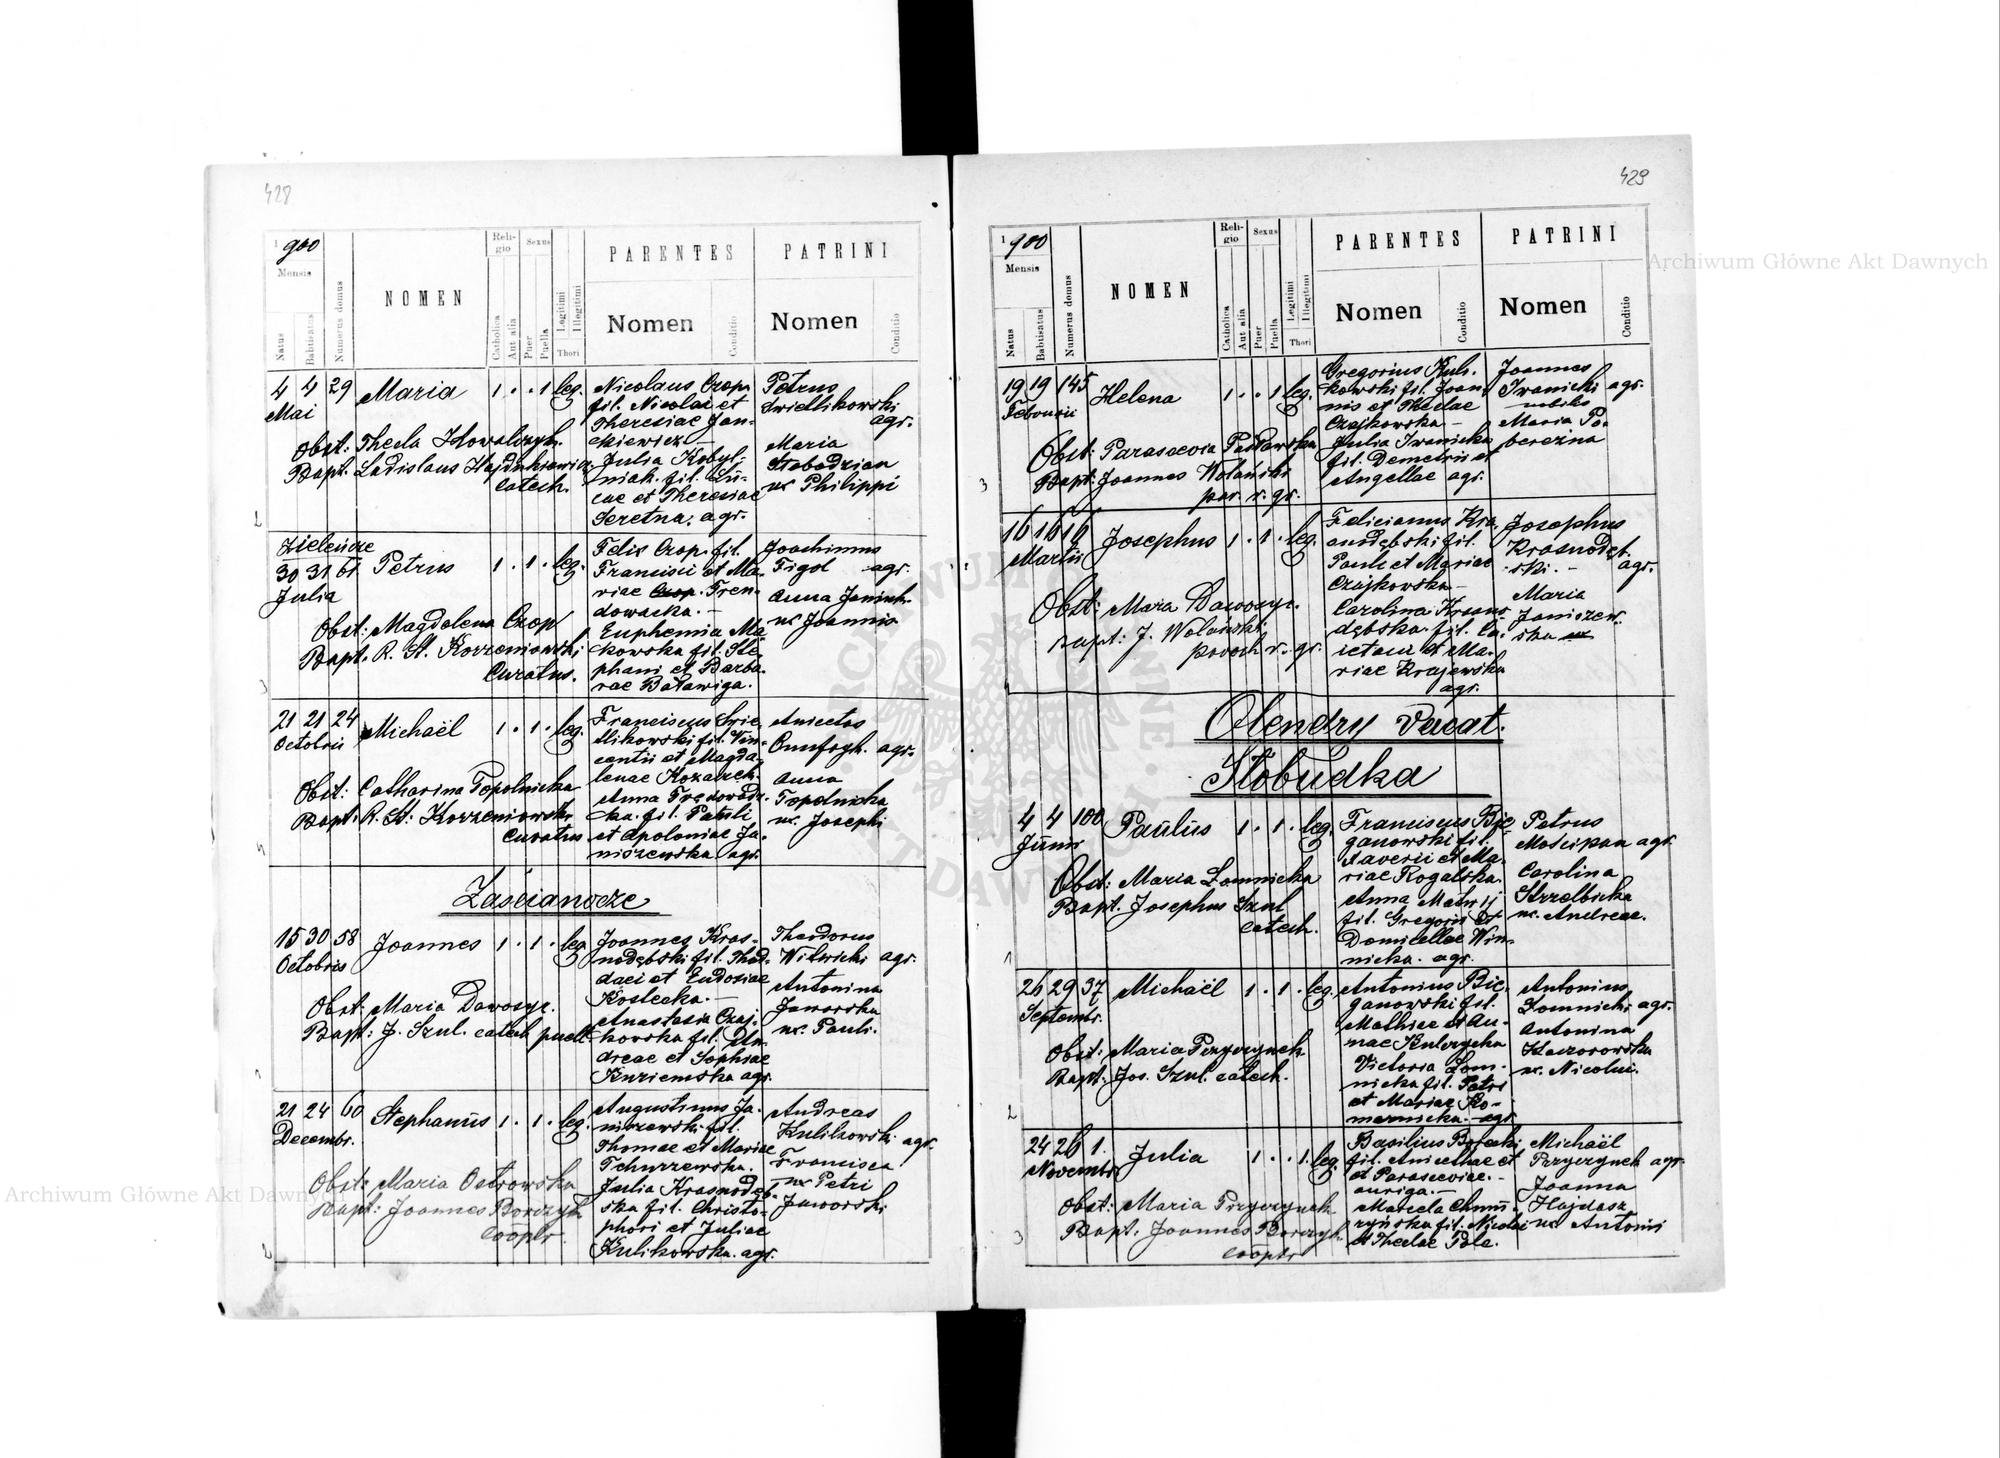 428
1900
Mensis
Natus
Babtisatus
Numerus domus
NOMEN
Religio
Catholica
Aut alia
Sexus
Puer
Puella
Legitimi
Illegitimi
Thori
PARENTES
Nomen
Conditio
PATRINI
Nomen
Conditio
4 4 29 Maria 1 . . 1 leg.
Mai
Obst: Thecla Kowalczyk.
Bapt. Ladislaus Hajdukiewicz
catech.
Nicolaus Czop
fil. Nicolai et
Theresiae Jan-
ckiewicz —
Julia Kobyl-
niak. fil. Lu-
cae et Theresiae
Seretna. agr.
Petrus
Swietlikowski
agr.
Maria
Słobodzian
ux Philippi
2
Zieleńcze
30 31 61 Petrus 1 . 1 . leg.
Julia
Obst: Magdalena Czop
Bapt. R. St. Korzeniowski
Curatus.
Felix Czop. fil.
Francisci et Ma-
riae Czop. Tren-
dowacka. —
Euphemia Ma-
kowska fil. Ste-
phani et Barba-
rae Baławiga.
Joachimus
Figol agr.
Anna Janiuk.
ux Joannis
3
21 21 24 Michaël 1 . 1 . leg.
Octobris
Obst: Catharina Topolnicka
Bapt: R. St: Korzeniowski
Curatus
Franciscus Swie-
tlikowski fil. Vin-
centii et Magda-
lenae Kozaczek.
Anna Trędowac-
cka. fil. Pauli
et Apoloniae Ja-
niszewska agr.
Anicetus
Onufryk. agr.
Anna
Topolnicka
ux. Josephi
Zaścianocze
15 30 58 Joannes 1 . 1 . leg
Octobris
Obst: Maria Dawosyr.
Bapt: J. Szul. catech
Joannes Kras-
nodębski fil. Thad-
daei et Eudosiae
Kostecka. —
Anastasia Czaj-
kowska fil. An-
dreae et Sophiae
Kuziemska agr.
Theodorus
Witwicki agr.
Antonina
Jaworska
ux. Pauli.
21 24 60 Stephanus 1 . 1 . leg.
Decembr.
Obst: Maria Ostrowska
Bapt: Joannes Borczyk
coopr.
Augustinus Ja-
niszewski fil.
Thomae et Mariae
Tchurzewska.
Julia Krasnodęb-
ska fil. Christo-
phori et Juliae
Kulikowska. agr.
Andreas
Kulikowski agr.
Francisca
ux Petri
Jaworski
2
429
1900
Mensis
Natus
Babtisatus
Numerus domus
NOMEN
Religio
Catholica
Aut alia
Sexus
Puer
Puella
Legitimi
Illegitimi
Thori
PARENTES
Nomen
Conditio
PATRINI
Nomen
Conditio
19 19 145 Helena 1 . . 1 leg.
Februarii
Obst: Parascevia Pasławska
Bapt: Joannes Wolański
par. r. gr.
Gregorius Kuli-
kowski fil. Joan-
nis et Theclae
Czajkowska —
Julia Iwanicka
fil. Demetrii et
Angellae agr.
Joannes
Iwanicki agr.
Maria Po-
berezna
3
16 16 16 Josephus 1 . 1 . leg.
Martii
Obst: Maria Dawosyr.
Bapt: J. Wolański
paroch r. gr.
Felicianus Kra-
snodębski fil.
Pauli et Mariae
Czajkowska —
Carolina Krasno-
dębska. fil. Ca-
ietani et Ma-
riae Krajewska
agr.
Josephus
Krasnodęb-
ski. — agr.
Maria
Janiszew-
ska
Olendry Vacat.
Słobudka
4 4 100 Paulus 1 . 1 . leg
Junii
Obst: Maria Łomnicka
Bapt. Josephus Szul
catech.
Franciscus Bie-
ganowski fil.
Xaverii et Ma-
riae Rogalska.
Anna Matwij
fil. Gregorii et
Domicellae Win-
nicka. agr.
Petrus
Mościpan agr.
Carolina
Strzelbicka
ux. Andreae.
1
26 29 37 Michaël 1 . 1 . leg.
Septembr.
Obst: Maria Przyczynek
Bapt: Jos. Szul. catech.
Antonius Bie-
ganowski fil.
Mathiae et An-
nae Kulczycka
Victoria Łom-
nicka fil. Petri
et Mariae Ko-
marnicka. agr
Antonius
Łomnicki agr.
Antonina
Kaczorowska
ux. Nicolai.
2
24 26 1. Julia 1 . . 1 leg.
Novembris
Obst: Maria Przyczynek
Bapt. Joannes Borczyk
coopr
Basilius Bojecki
fil. Anicethae et
et Parasceviae. —
auriga. —
fil. Nicolai
et Theclae Pole.
Michaël
Przyczynek agr.
Joanna
Hajdasz
ux Antonii
3
Archiwum Główne Akt Dawnych
Archiwum Główne Akt Dawnych